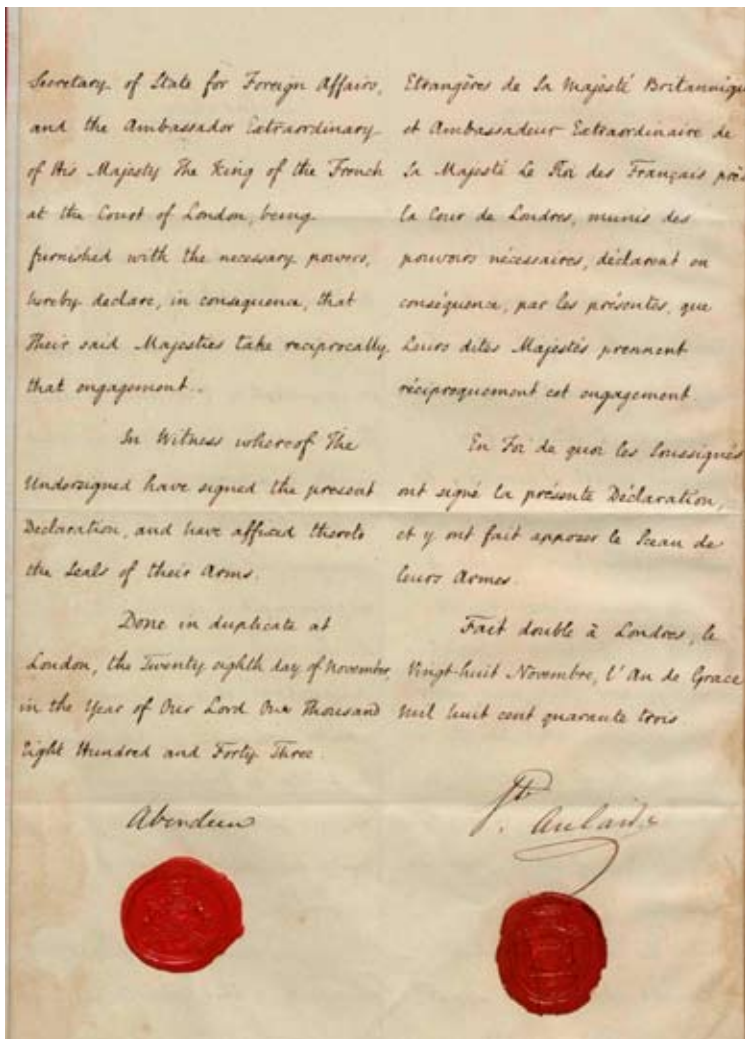 Secretary of State for Foreign Affairs,
and the Ambassador Extraordinary
of His Majesty The King of the French
at the Court of London, being
furnished with the necessary powers,
hereby declare, in consequence, that
Their said Majesties take reciprocally
that engagement.
In Witness whereof The
Undersigned have signed the present
Declaration, and have affixed thereto
the Seals of their Arms.
Done in duplicate at
London, the Twenty eighth day of November,
in the Year of Our Lord One Thousand
Eight Hundred and Forty Three.
Aberdeen
Etrangères de Sa Majesté Britannique
et Ambassadeur Extraordinaire de
Sa Majesté Le Roi des Français près
la Cour de Londres, munis des
pouvoirs nécessaires, déclarent en
conséquence, par les présentes, que
Leurs dites Majestés prennent
réciproquement cet engagement
En Foi de quoi les Soussignés
ont signé la présente Déclaration,
et y ont fait apposer le Sceau de
leurs Armes.
Fait double à Londres, le
Vingt-huit Novembre, l'An de Grace
Mil huit cent quarante trois
Aulaire